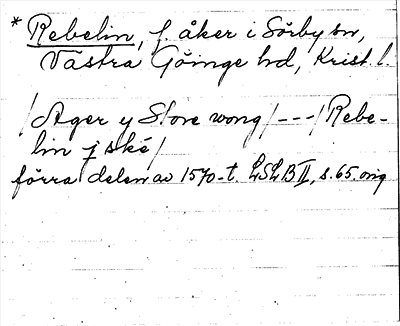 * Rebelin, f. åker i Sörby sn,
Västra Göinge hd, Krist. l.
/Ager y Store wong/---/Rebe-
lin j ské/
förra delen av 1570-t. LSLB II, s. 65. orig